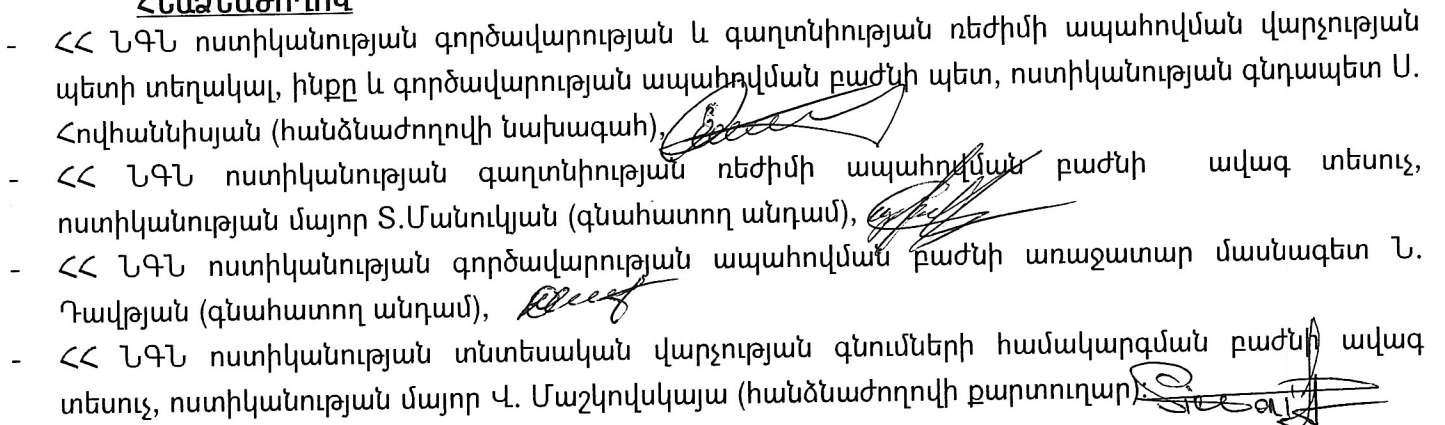 Հանձնաժողով
- ՀՀ ՆԳՆ ոստիկանության գործավարության և գաղտնիության ռեժիմի ապահովման վարչության
պետի տեղակալ, ինքը և գործավարության ապահովման բաժնի պետ, ոստիկանության գնդապետ Ս.
Հովհաննիսյան (հանձնաժողովի նախագահ),
- ՀՀ ՆԳՆ ոստիկանության գաղտնիության ռեժիմի ապահովման բաժնի ավագ տեսուչ,
ոստիկանության մայոր Տ.Մանուկյան (գնահատող անդամ),
- ՀՀ ՆԳՆ ոստիկանության գործավարության ապահովման բաժնի առաջատար մասնագետ Ն.
Դավթյան (գնահատող անդամ),
- ՀՀ ՆԳՆ ոստիկանության տնտեսական վարչության գնումների համակարգման բաժնի ավագ
տեսուչ, ոստիկանության մայոր Վ. Մաշկովսկայա (հանձնաժողովի քարտուղար):